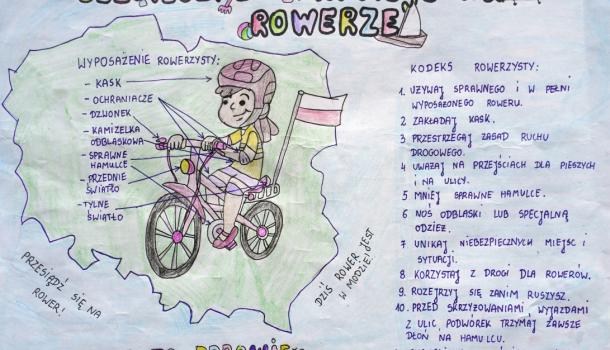 ROWERZE
WYPOSAŻENIE ROWERZYSTY:
- KASK
- OCHRANIACZE
- DZWONEK
- KAMIZELKA
ODBLASKOWA
- SPRAWNE
HAMULCE
- PRZEDNIE
ŚWIATŁO
- TYLNE
ŚWIATŁO
PRZESIĄDŹ SIĘ NA
ROWER!
DZIŚ ROWER JEST
W MODZIE!
KODEKS ROWERZYSTY:
1. UŻYWAJ SPRAWNEGO I W PEŁNI
WYPOSAŻONEGO ROWERU.
2. ZAKŁADAJ KASK.
3 PRZESTRZEGAJ ZASAD RUCHU
DROGOWEGO.
4 UWAŻAJ NA PRZEJŚCIACH DLA PIESZYCH
I NA ULICY.
5 MNIEJ SPRAWNE HAMULCE.
6 NOŚ ODBLASKI LUB SPECJALNĄ
ODZIEŻ.
7 UNIKAJ NIEBEZPIECZNYCH MIEJSC I
SYTUACJI.
8 KORZYSTAJ Z DROGI DLA ROWERÓW.
9. ROZEJRZYJ SIĘ ZANIM RUSZYSZ.
10. PRZED SKRZYŻOWANIAMI, WYJAZDAMI
Z ULIC, PODWÓREK TRZYMAJ ZAWSZE
DŁOŃ NA HAMULCU.